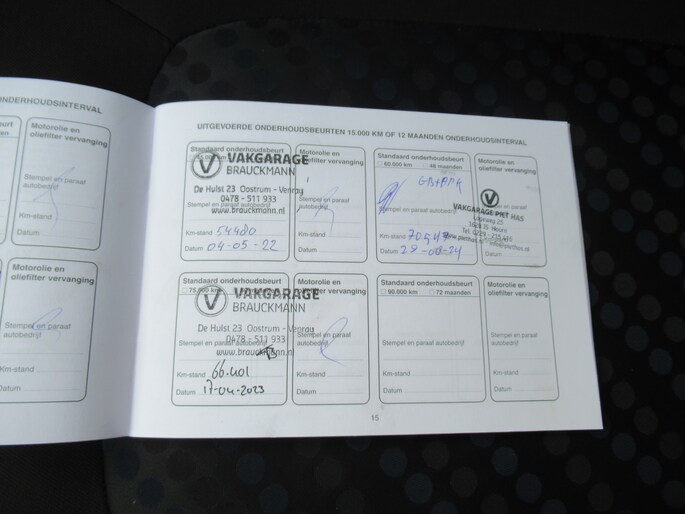 ONDERHOUDSINTERVAL
Motorolie en
oliefilter vervanging
Stempel en paraaf
autobedrijf
Km-stand
Datum
Motorolie en
oliefilter vervanging
Stempel en paraaf
autobedrijf
Km-stand
Datum
UITGEVOERDE ONDERHOUDSBEURTEN 15.000 KM OF 12 MAANDEN ONDERHOUDSINTERVAL
Standaard onderhoudsbeurt
VAKGARAGE
BRAUCKMANN
De Hulst 23 Oostrum - Venray
0478 - 511 933
www.brauckmann.nl
Km-stand 54480
Datum 04-05-22
Motorolie en
oliefilter vervanging
Stempel en paraaf
autobedrijf
Km-stand
Datum
Standaard onderhoudsbeurt
60.000 km 48 maanden
Stempel en paraaf autobedrijf
Km-stand
Datum
Motorolie en
oliefilter vervanging
Stempel en paraaf
VAKGARAGE PIET HAS
Km-stand
Datum
Standaard onderhoudsbeurt
75.000 km
VAKGARAGE
BRAUCKMANN
De Hulst 23 Oostrum - Venray
Stempel en paraaf autobedrijf
0478 - 511 933
www.brauckmann.nl
Km-stand 66.401
Datum 17-04-2023
Motorolie en
oliefilter vervanging
Stempel en paraaf
autobedrijf
Km-stand
Datum
Standaard onderhoudsbeurt
90.000 km 72 maanden
Stempel en paraaf autobedrijf
Km-stand
Datum
Motorolie en
oliefilter vervanging
Stempel en paraaf
autobedrijf
Km-stand
Datum
15